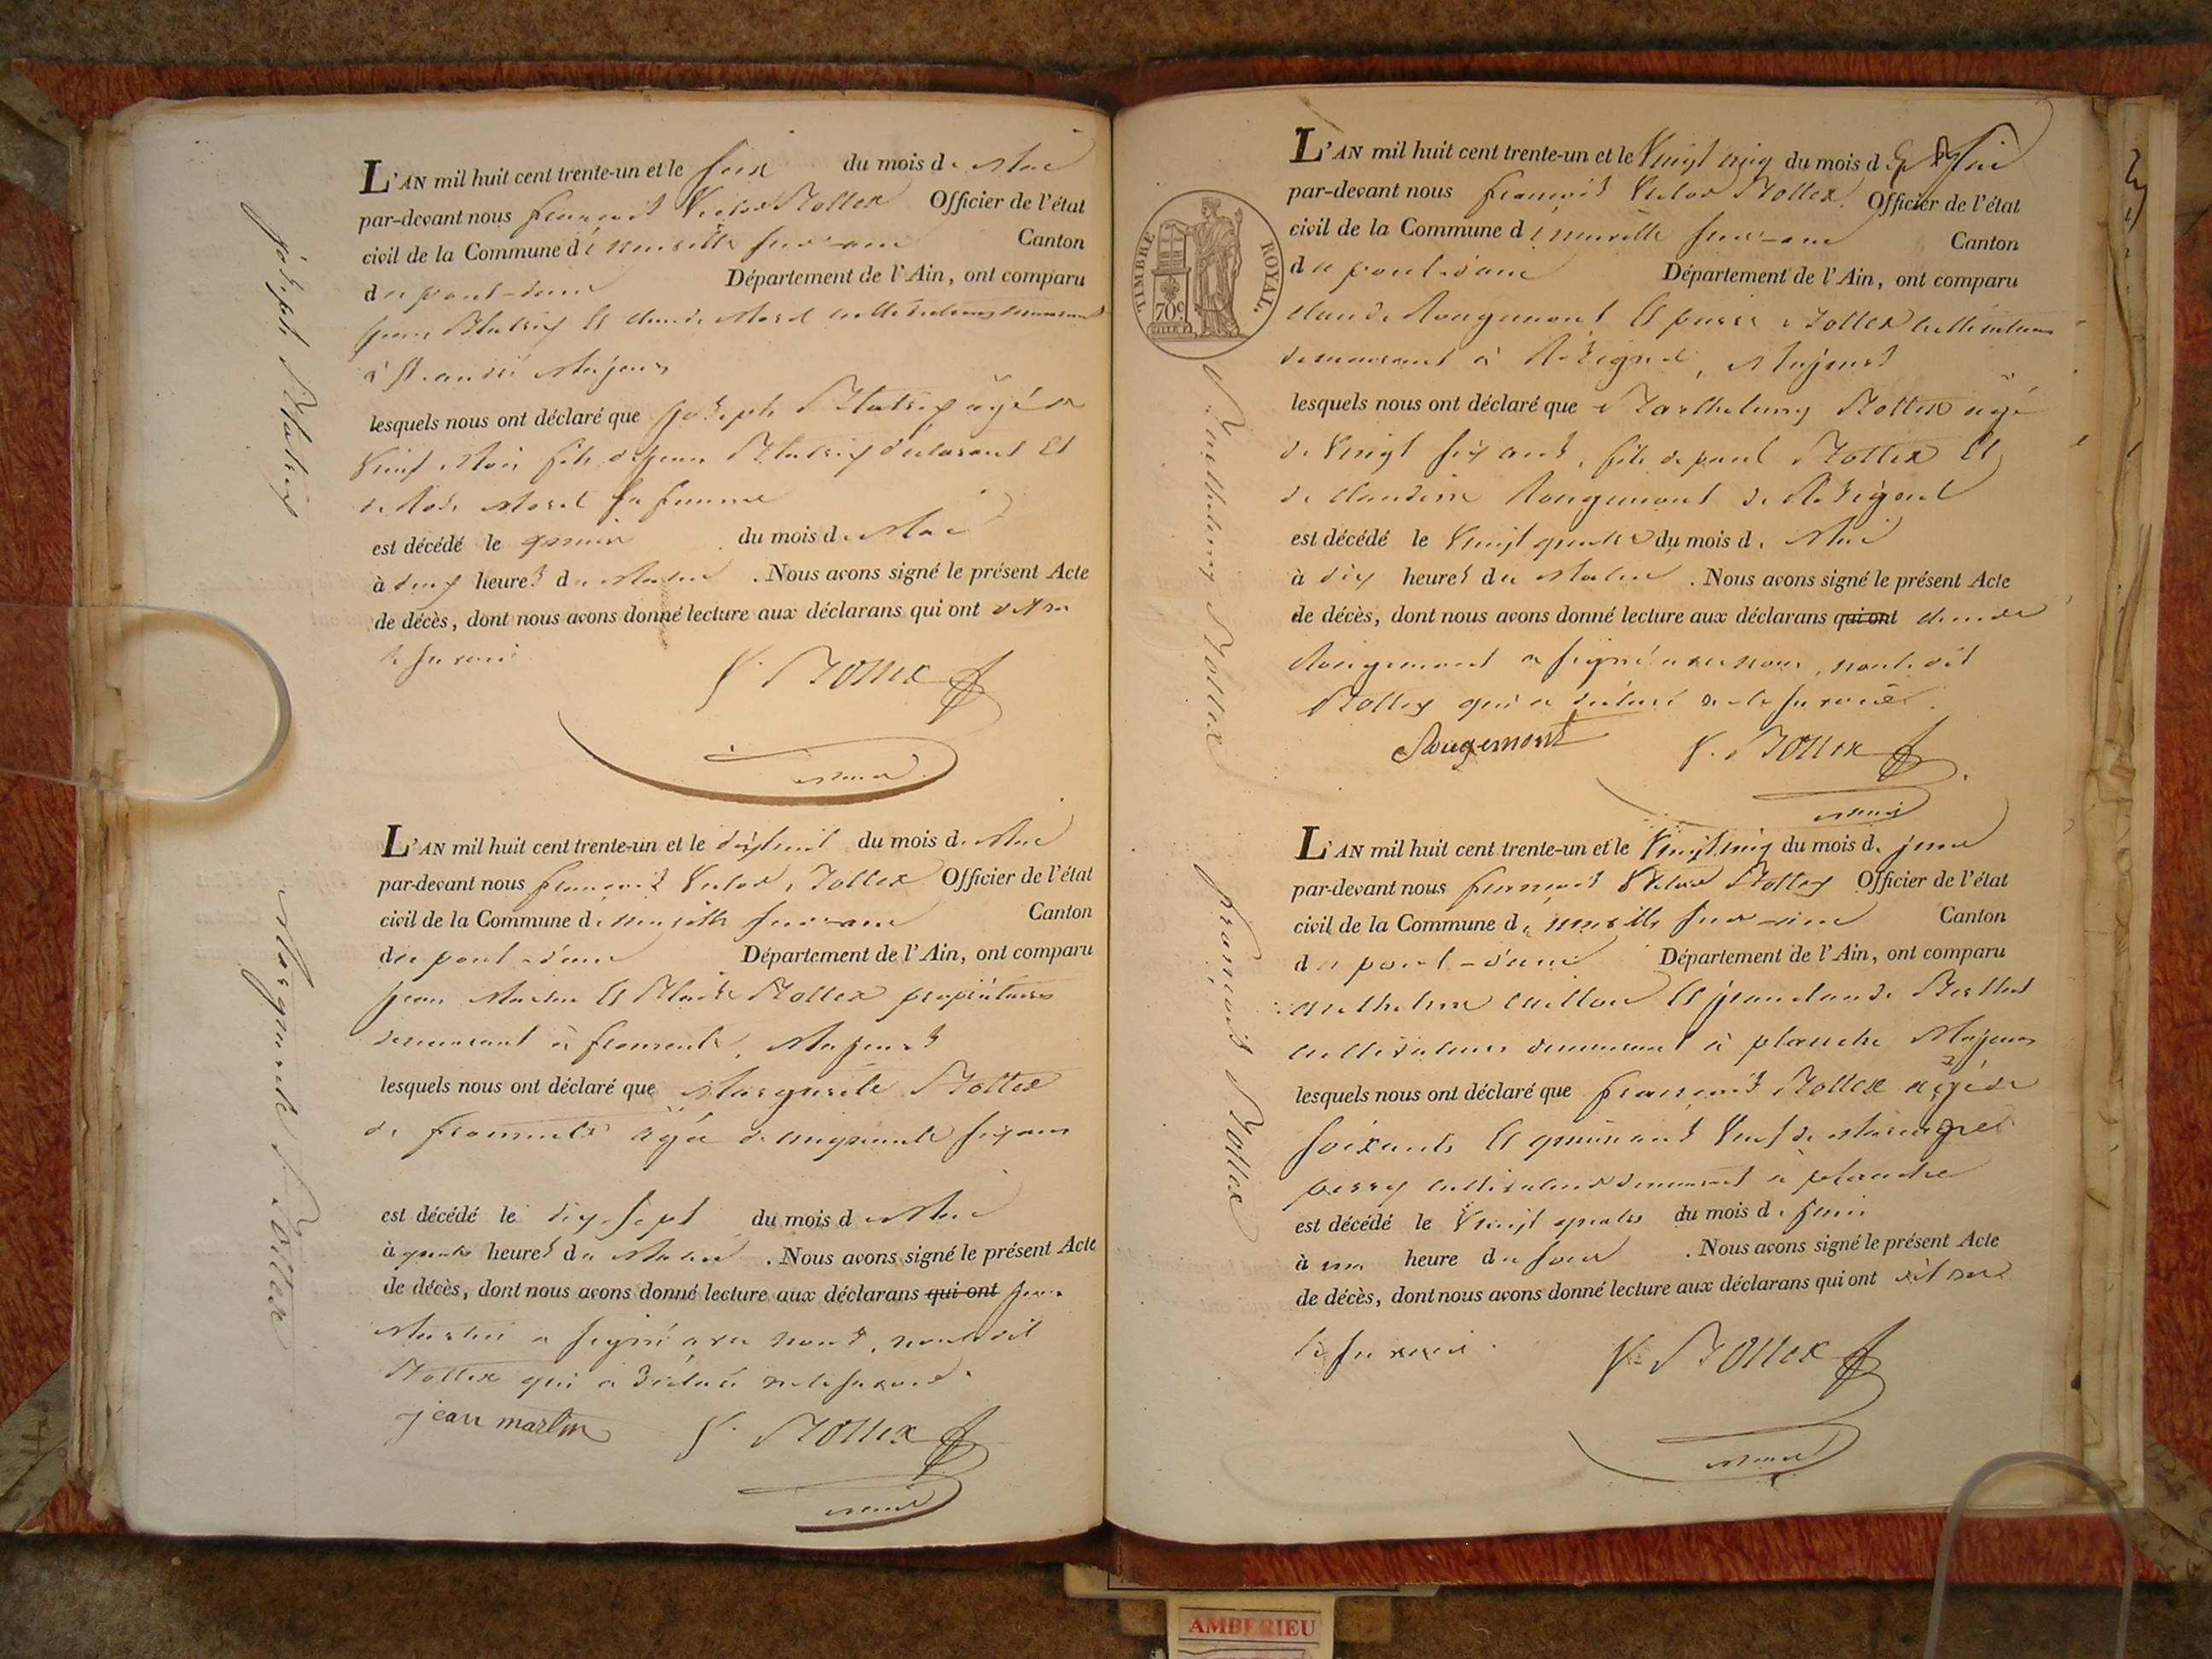 L'AN mil huit cent trente-un et le seize du mois de Mai
par-devant nous françois Victor Bollex Officier de l'état
civil de la Commune de neuville sur-ain Canton
du pont-d'ain Département de l'Ain, ont comparu
et claude Morel cultivateurs demeurant
à St. andré Majeurs
lesquels nous ont déclaré que joseph âgé de
Mois fils de declarant Et
de Morel sa femme
est décédé le quinze du mois de Mai
à deux heures du Matin. Nous avons signé le présent Acte
de décès, dont nous avons donné lecture aux déclarans qui ont dit ne
le savoir
V. Bollex
maire
joseph
L'AN mil huit cent trente-un et le dix huit du mois de Mai
par-devant nous françois Victor Bollex Officier de l'état
civil de la Commune de neuville sur-ain Canton
du pont-d'ain Département de l'Ain, ont comparu
jean Martin Et Bollex propriétaires
demeurant à fromente, Majeurs
lesquels nous ont déclaré que Marguerite Bollex
de fromente âgée de cinquante six ans
est décédé le dix-sept du mois de Mai
à quatre heures du Matin. Nous avons signé le présent Acte
de décès, dont nous avons donné lecture aux déclarans qui ont jean
Martin a signé avec nous, non ledit
Bollex qui a déclaré ne le savoir.
jean martin V. Bollex
maire
Marguerite Bollex
TIMBRE ROYAL.
70c
L'AN mil huit cent trente-un et le Vingt cinq du mois de Mai
par-devant nous françois Victor Bollex Officier de l'état
civil de la Commune de neuville sur-ain Canton
du pont-d'ain Département de l'Ain, ont comparu
claude Rougemont Et pierre Bollex cultivateurs
demeurant à Majeurs
lesquels nous ont déclaré que Barthelemy Bollex âgé
de Vingt six ans, fils de paul Bollex Et
de claudine Rougemont de
est décédé le Vingt quatre du mois de Mai
à dix heures du Matin. Nous avons signé le présent Acte
de décès, dont nous avons donné lecture aux déclarans qui ont claude
Rougemont a signé avec nous, non ledit
Bollex qui a déclaré ne le savoir.
Rougemont V. Bollex
maire
Barthelemy Bollex
L'AN mil huit cent trente-un et le Vingt cinq du mois de juin
par-devant nous françois Victor Bollex Officier de l'état
civil de la Commune de neuville sur-ain Canton
du pont-d'ain Département de l'Ain, ont comparu
anthelme Et jean claude Berthet
cultivateurs demeurant à planche Majeurs
lesquels nous ont déclaré que françois Bollex âgé de
soixante Et quinze ans Veuf de
cultivateur demeurant à planche
est décédé le Vingt quatre du mois de juin
à une heure du soir. Nous avons signé le présent Acte
de décès, dont nous avons donné lecture aux déclarans qui ont dit ne
le savoir.
V. Bollex
maire
françois Bollex
AMBERIEU